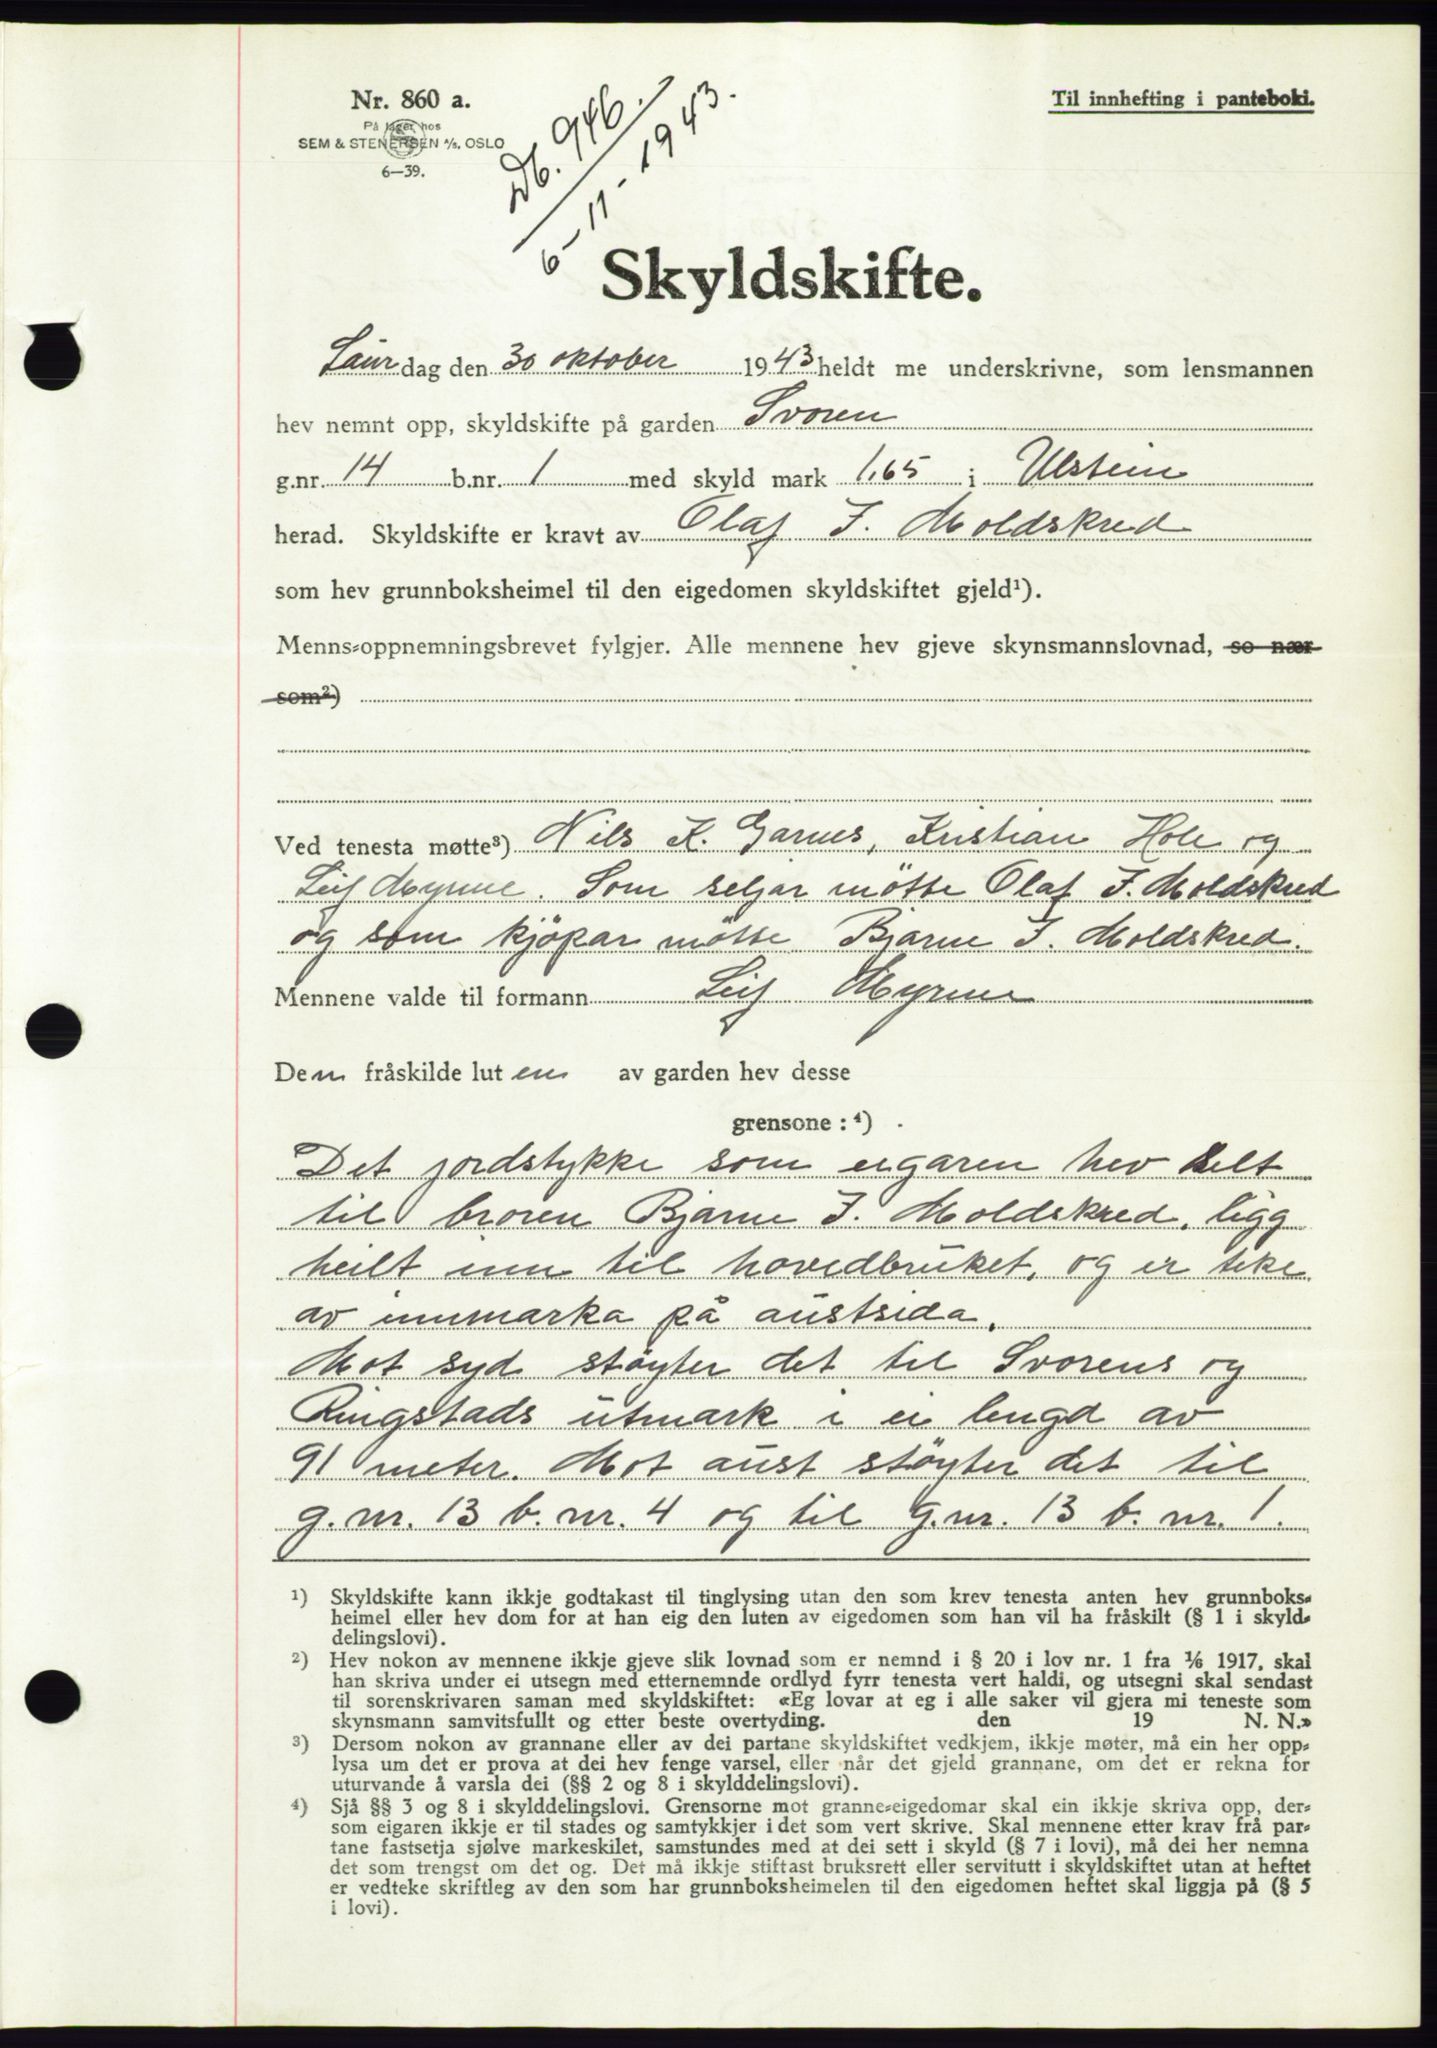 Nr. 860 a.
På lager hos
SEM & STENERSEN A/S, OSLO
6—39.
Db. 946.
6-11-1943.
Til innhefting i panteboki.
Skyldskifte.
Laur dag den 30 oktober 1943 heldt me underskrivne, som lensmannen
hev nemnt opp, skyldskifte på garden Svoren
g.nr. 14 b.nr. 1 med skyld mark 1,65 i Ulstein
herad. Skyldskifte er kravt av Olaf J. Moldskred
som hev grunnboksheimel til den eigedomen skyldskiftet gjeld¹).
Menns-oppnemningsbrevet fylgjer. Alle mennene hev gjeve skynsmannslovnad, so nær
som²)
Ved tenesta møtte³) Nils K. Garnes, Kristian Hole og
Leif Myrene. Som seljar mötte Olaf J. Moldskred
og som kjöpar mötte Bjarne J. Moldskred.
Mennene valde til formann Leif Myrene
Den fråskilde luten av garden hev desse
grensone :⁴)
Det jordstykke som eigaren hev selt
til broren Bjarne J. Moldskred, ligg
heilt inn til hovedbruket, og er teke
av innmarka på austsida.
Mot syd støyter det til Svorens og
Ringstads utmark i ei lengd av
91 meter. Mot aust støyter det til
g.nr. 13 b.nr. 4 og til g.nr. 13 b.nr. 1.
¹) Skyldskifte kann ikkje godtakast til tinglysing utan den som krev tenesta anten hev grunnboks-
heimel eller hev dom for at han eig den luten av eigedomen som han vil ha fråskilt (§ 1 i skyld-
delingslovi).
²) Hev nokon av mennene ikkje gjeve slik lovnad som er nemnd i § 20 i lov nr. 1 fra 1/6 1917, skal
han skriva under ei utsegn med etternemnde ordlyd fyrr tenesta vert haldi, og utsegni skal sendast
til sorenskrivaren saman med skyldskiftet: «Eg lovar at eg i alle saker vil gjera mi teneste som
skynsmann samvitsfullt og etter beste overtyding. den 19 N. N.»
³) Dersom nokon av grannane eller av dei partane skyldskiftet vedkjem, ikkje møter, må ein her opp-
lysa um det er prova at dei hev fenge varsel, eller når det gjeld grannane, om det er rekna for
uturvande å varsla dei (§§ 2 og 8 i skylddelingslovi).
⁴) Sjå §§ 3 og 8 i skylddelingslovi. Grensorne mot granne-eigedomar skal ein ikkje skriva opp, der-
som eigaren ikkje er til stades og samtykkjer i det som vert skrive. Skal mennene etter krav frå par-
tane fastsetja sjølve markeskilet, samstundes med at dei sett i skyld (§ 7 i lovi), må dei her nemna
det som trengst om det og. Det må ikkje stiftast bruksrett eller servitutt i skyldskiftet utan at heftet
er vedteke skriftleg av den som har grunnboksheimelen til den eigedomen heftet skal liggja på (§ 5
i lovi).